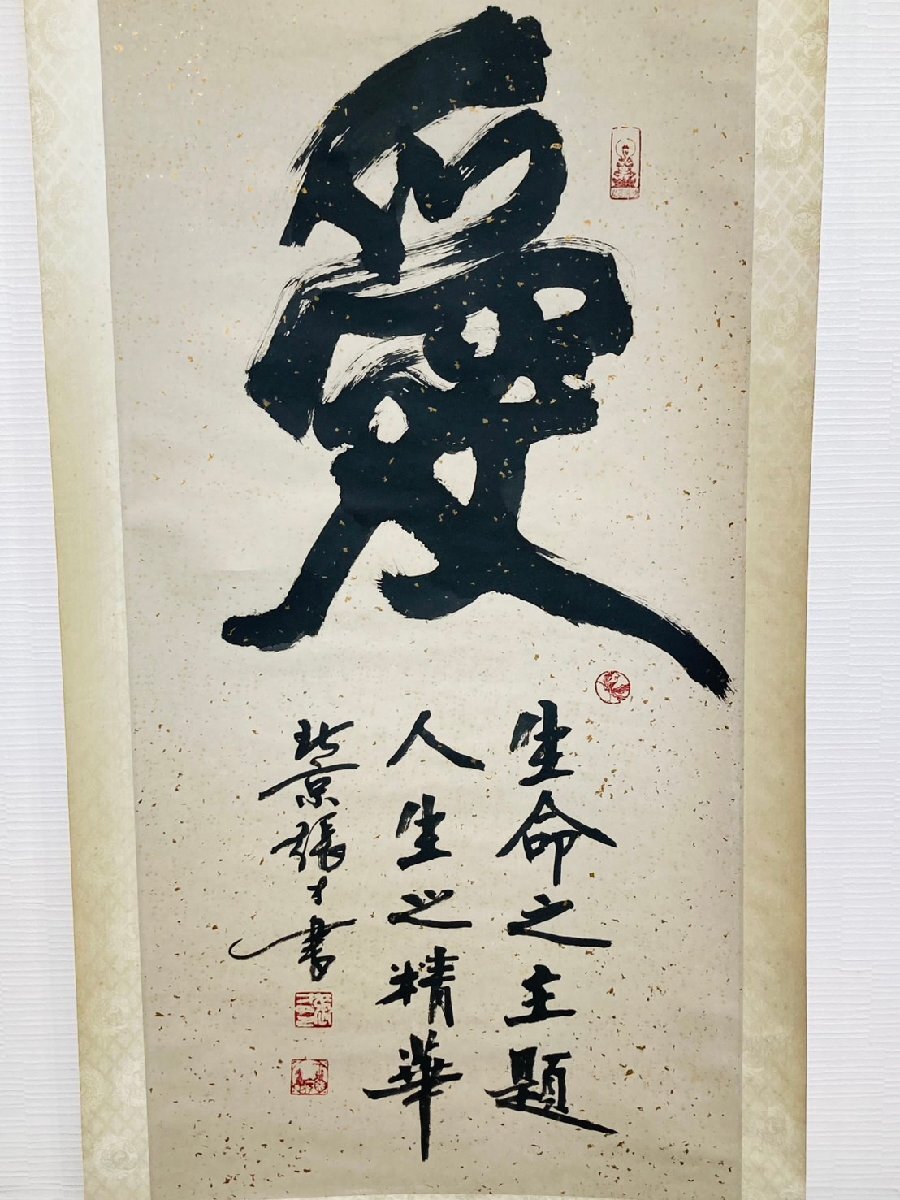 愛
生命之主題
人生之精華
北京張才書